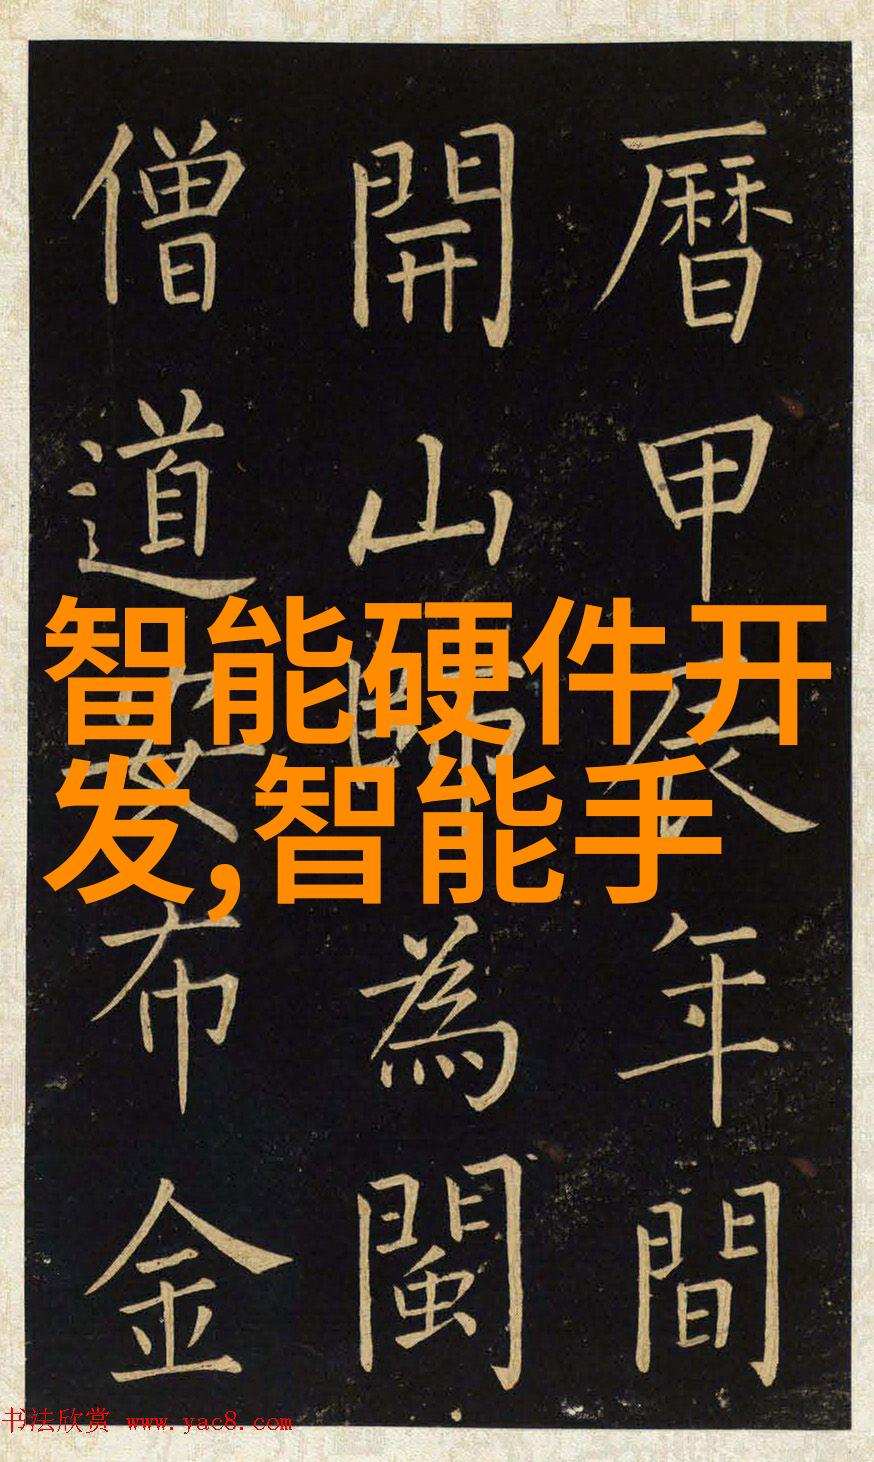 曆甲辰年間
開山師為閩
僧道安布金
智能硬件开
发,智能手
书法欣赏 www.yac8.com